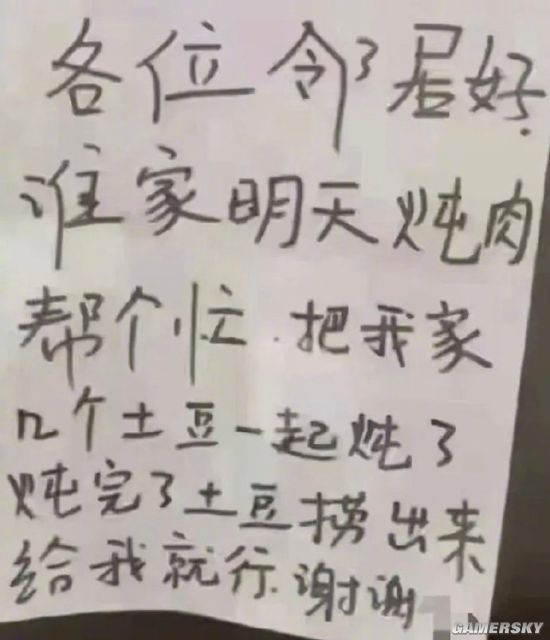 各位邻居好.
谁家明天炖肉
帮个忙.把我家
几个土豆一起炖了
炖完了土豆捞出来
给我就行.谢谢
GAMERSKY